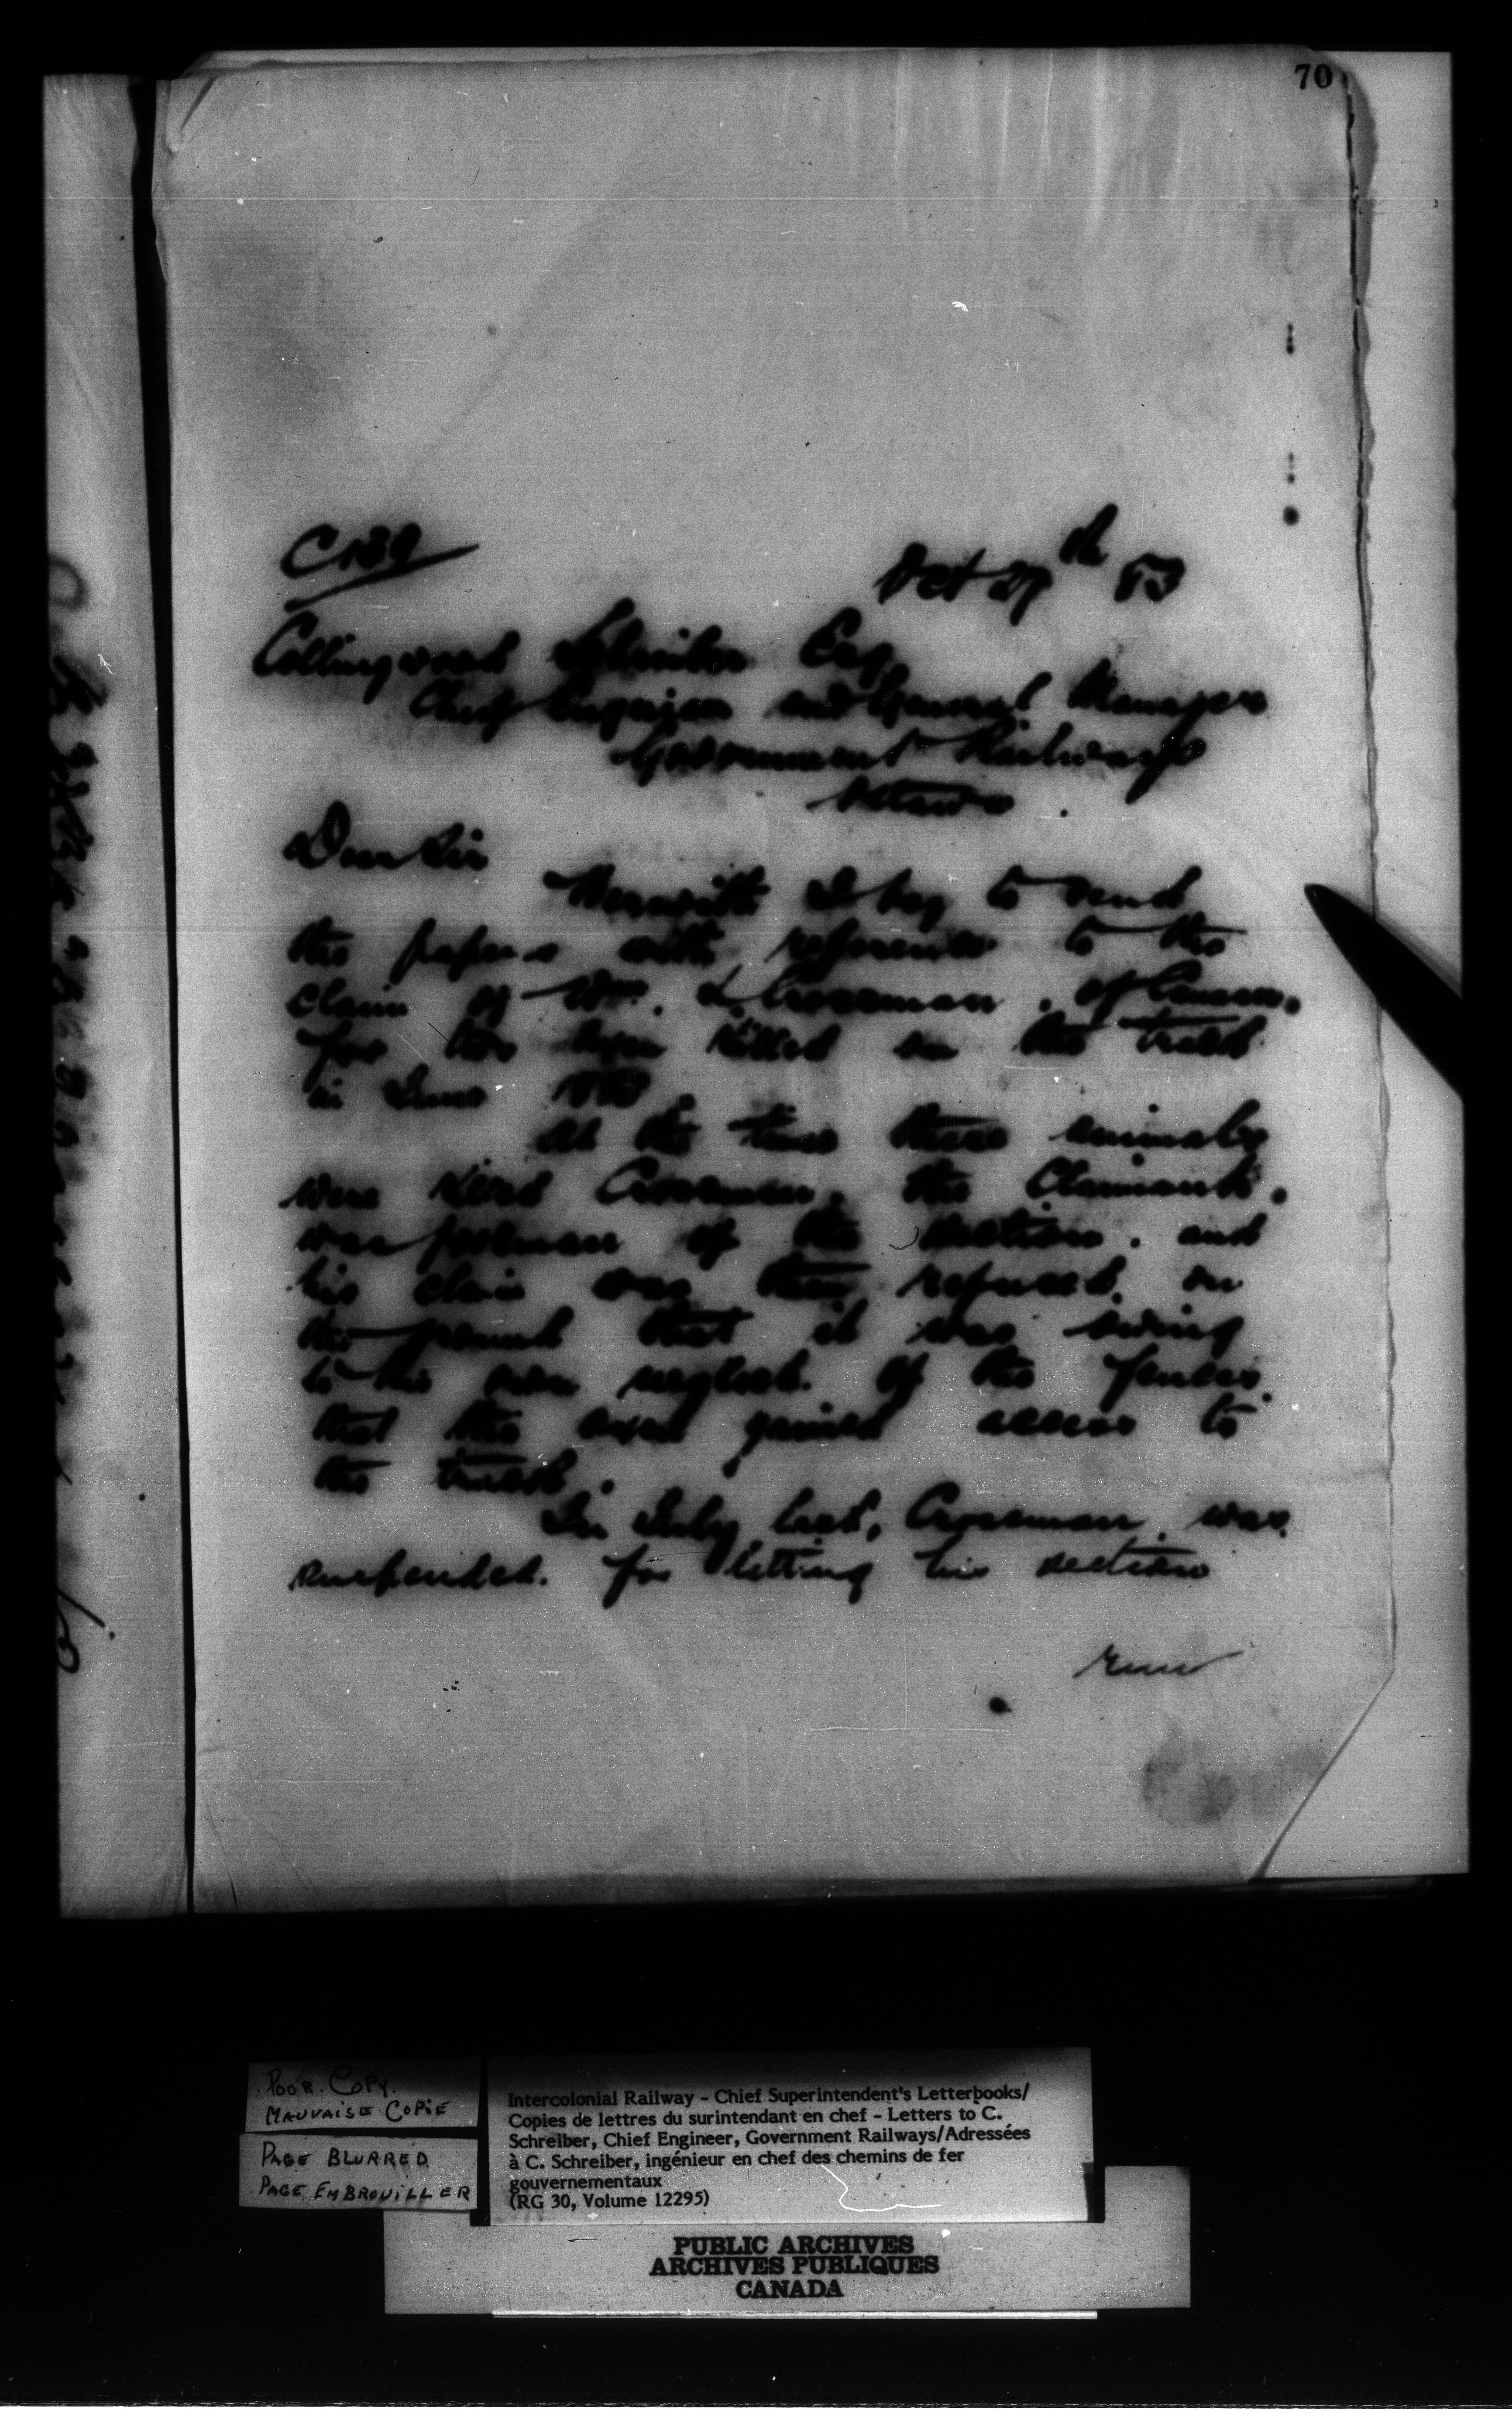 70
C139
Oct 27th 83
Collingwood Schreiber Esq
Chief Engineer and General Manager
Government Railways
Ottawa.
Dear Sir
Herewith I beg to send
the papers with reference to the
claim of Wm. Crossman, of
for two killed on the track
in June
At the time these animals
were killed Crossman, the Claimant,
was foreman of the section, and
his claim was then refused, on
the ground that it was owing
to his own neglect of the fences
that the oxen gained access to
the track.
In July last, Crossman, was
suspended. for letting his section
run
POOR COPY
MAUVAISE COPIE
PAGE BLURRED
PAGE EMBROUILLER
Intercolonial Railway - Chief Superintendent's Letterbooks/
Copies de lettres du surintendant en chef - Letters to C.
Schreiber, Chief Engineer, Government Railways/Adressées
à C. Schreiber, ingénieur en chef des chemins de fer
gouvernementaux
(RG 30, Volume 12295)
PUBLIC ARCHIVES
ARCHIVES PUBLIQUES
CANADA